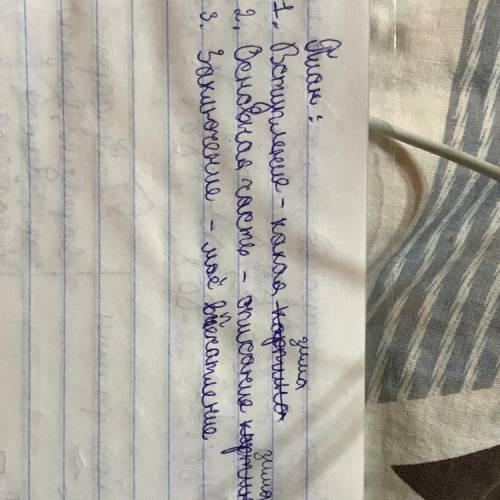 План:
1. Вступление - какая картина зима
2. Основная часть - описание картин зима
3. Заключение - моё впечатление.